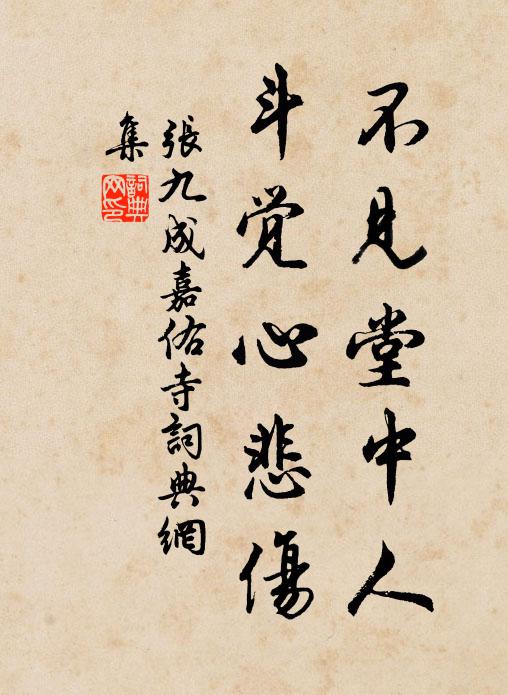 不見堂中人
斗觉心悲傷
張九成嘉佑寺詞典網
集
詞典
网印